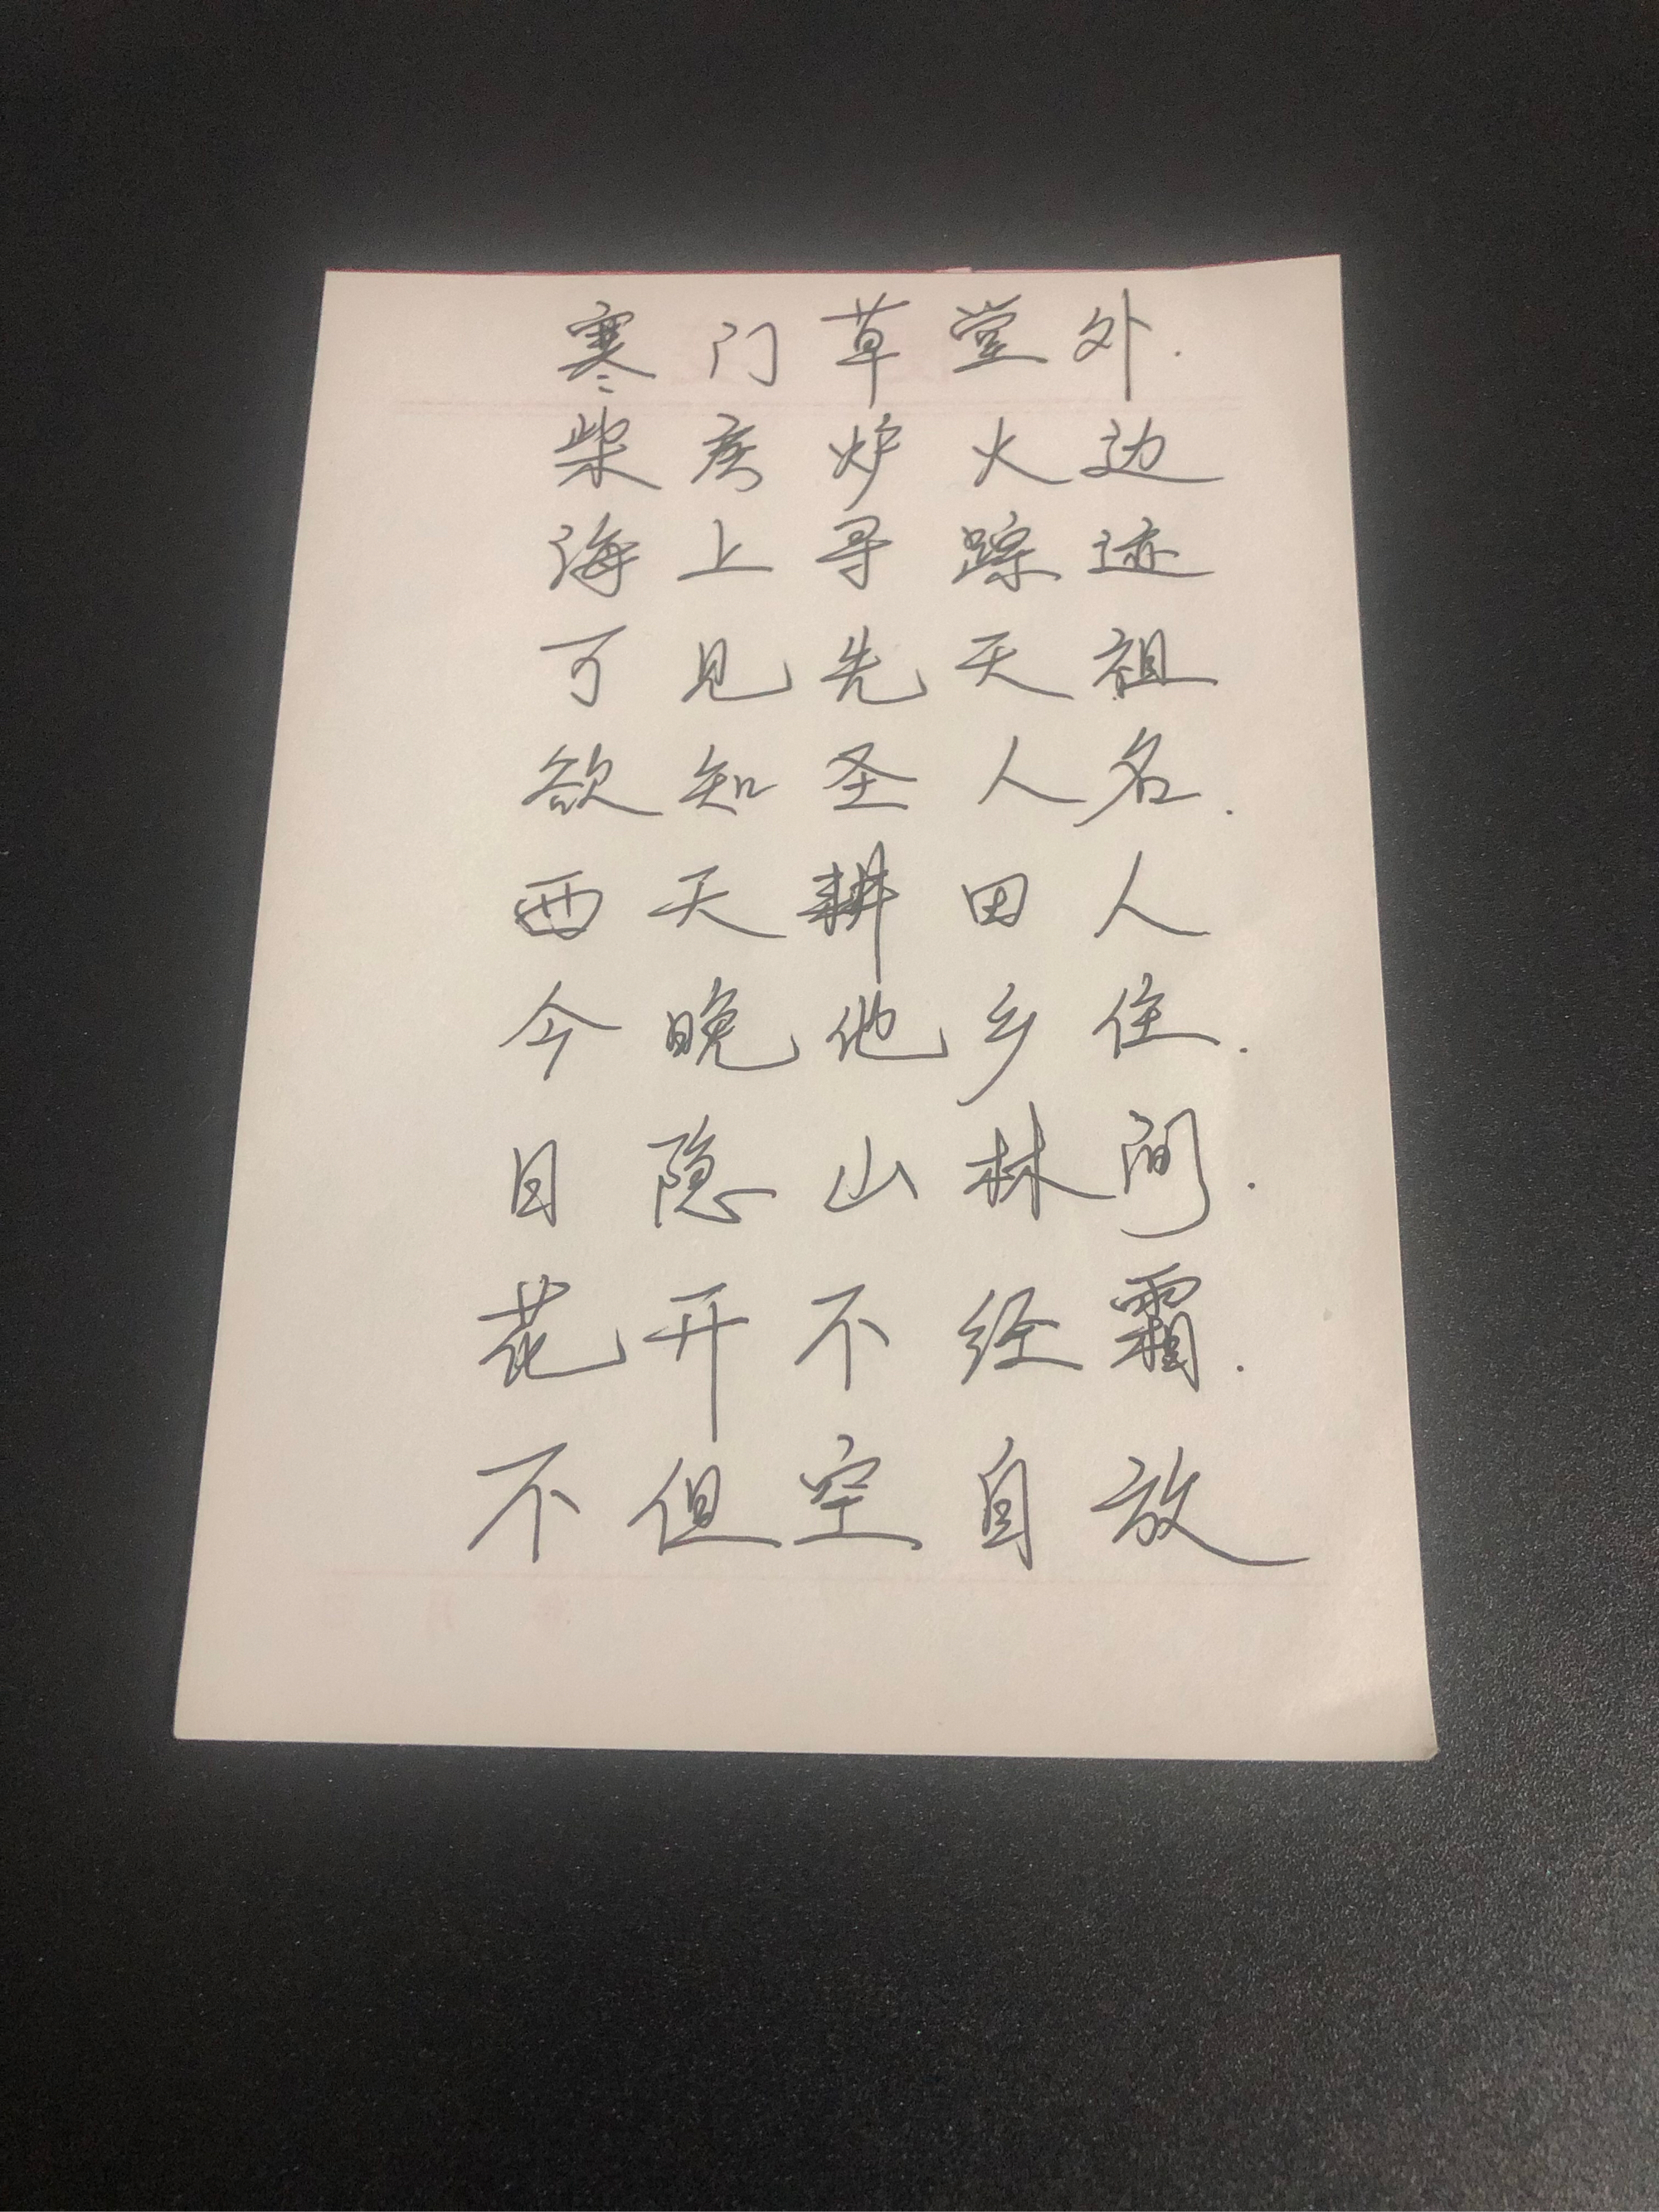 寒门草堂外.
柴房炉火边
海上寻踪迹
可见先天祖
欲知圣人名.
西天耕田人
今晚他乡住.
日隐山林间.
花开不经霜.
不但空自放